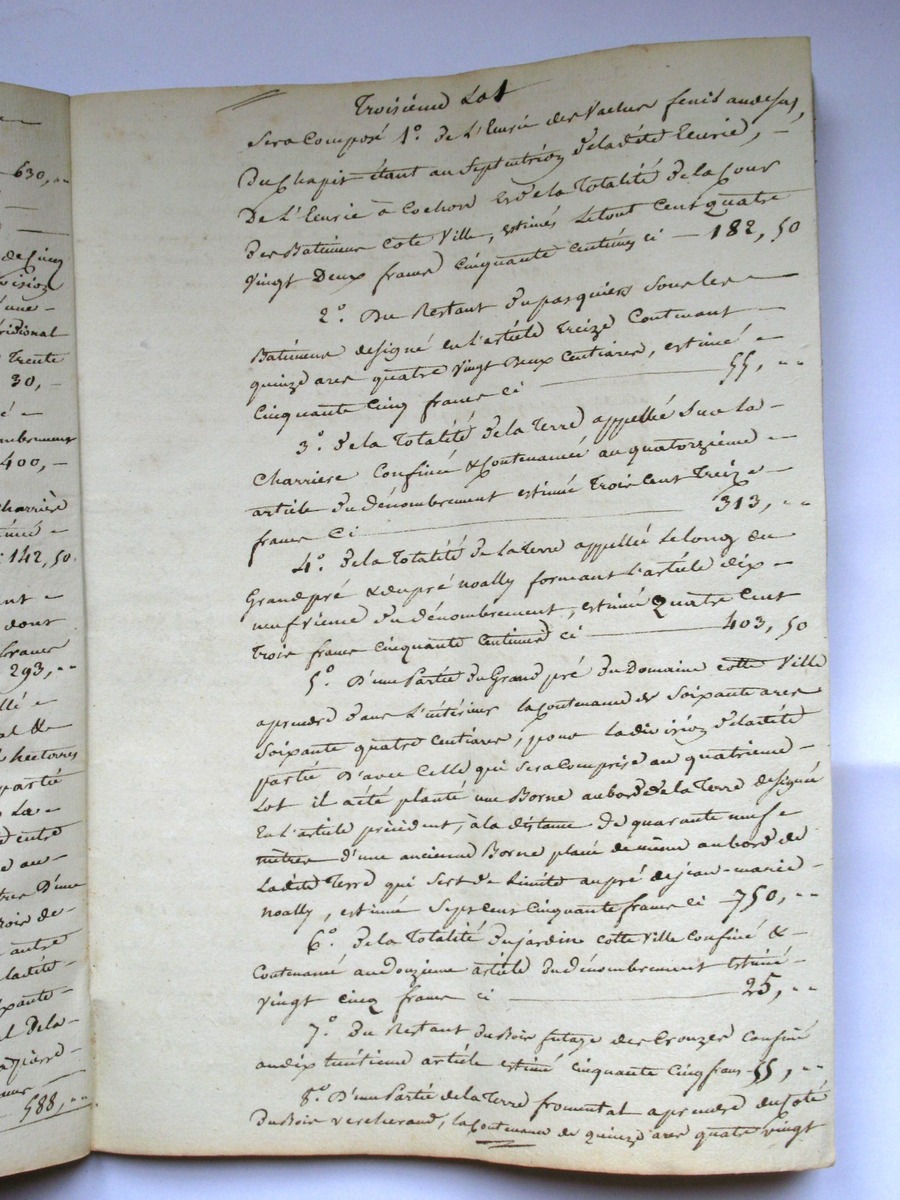 630,
de Cinq
vision
d'une
ridional
Trente
30,-
é -
ombrement
400,-
harrière
142,50
ant -
dont
francs
293,-
llé -
al &
hectares
partié
La -
entre
au -
D'une
rois de-
autre
ladite-
ixante-
Dela-
588,-
Troisiéme Lot
Sera Composé 1º. de L'Ecurié des Vaches fenil audessus,
Du Chapit étant au Septentrion de ladite Ecurié, -
De L'Ecurié à Cochon et de la Totalité de la Cour
des Batimens Coté Ville, estimés le tout Cent quatre
Vingt Deux francs Cinquante Centimes ci - 182, 50
2º. Du Restant du pasquiers sous les
Batimens designé en L'article treize Contenant -
quinze ares quatre Vingt Deux Centiares, estimé -
Cinquante Cinq francs ci 55, --
3º. de la Totalité de la Terre appellée Sur la -
Charriere Confinée & Contenancée au quatorzième -
article du dénombrement estimée Trois Cent Treize -
francs Ci 313, --
4º. de la Totalité de la Terre appellée Le long du
Grand pré & du pré noally formant L'article dix -
neufvieme du dénombrement, estimée Quatre Cent
Trois francs Cinquante Centimes ci 403, 50
5º. D'une Partie du Grand pré du Domaine cotté Ville
aprendre dans L'intérieur la Contenance de Soixante ares
Soixante quatre Centiares, pour la division de ladite
partié D'avec Celle qui Sera Comprise au quatrieme -
Lot il a été planté une Borne au bord de la Terre designée
En L'article précédent, à la distance de quarante neuf -
mètres d'une ancienne Borne placé de même au bord de
Ladite Terre qui Sert de Limite au pré de jean-marie -
noally, estimée Sept Cent Cinquante francs ci - 750, --
6º. de la Totalité du jardin cotté Ville Confiné & -
Contenancé au douzieme article du dénombrement Estimé -
Vingt Cinq francs ci 25, --
7º. du Restant du Bois futaye des Crouzes Confiné
au dix huitieme article estimé Cinquante Cinq francs 55, --
8º. D'une Partie de la Terre fromentat aprendre du Coté
du Bois vercherand, la Contenance de quinze ares quatre Vingt